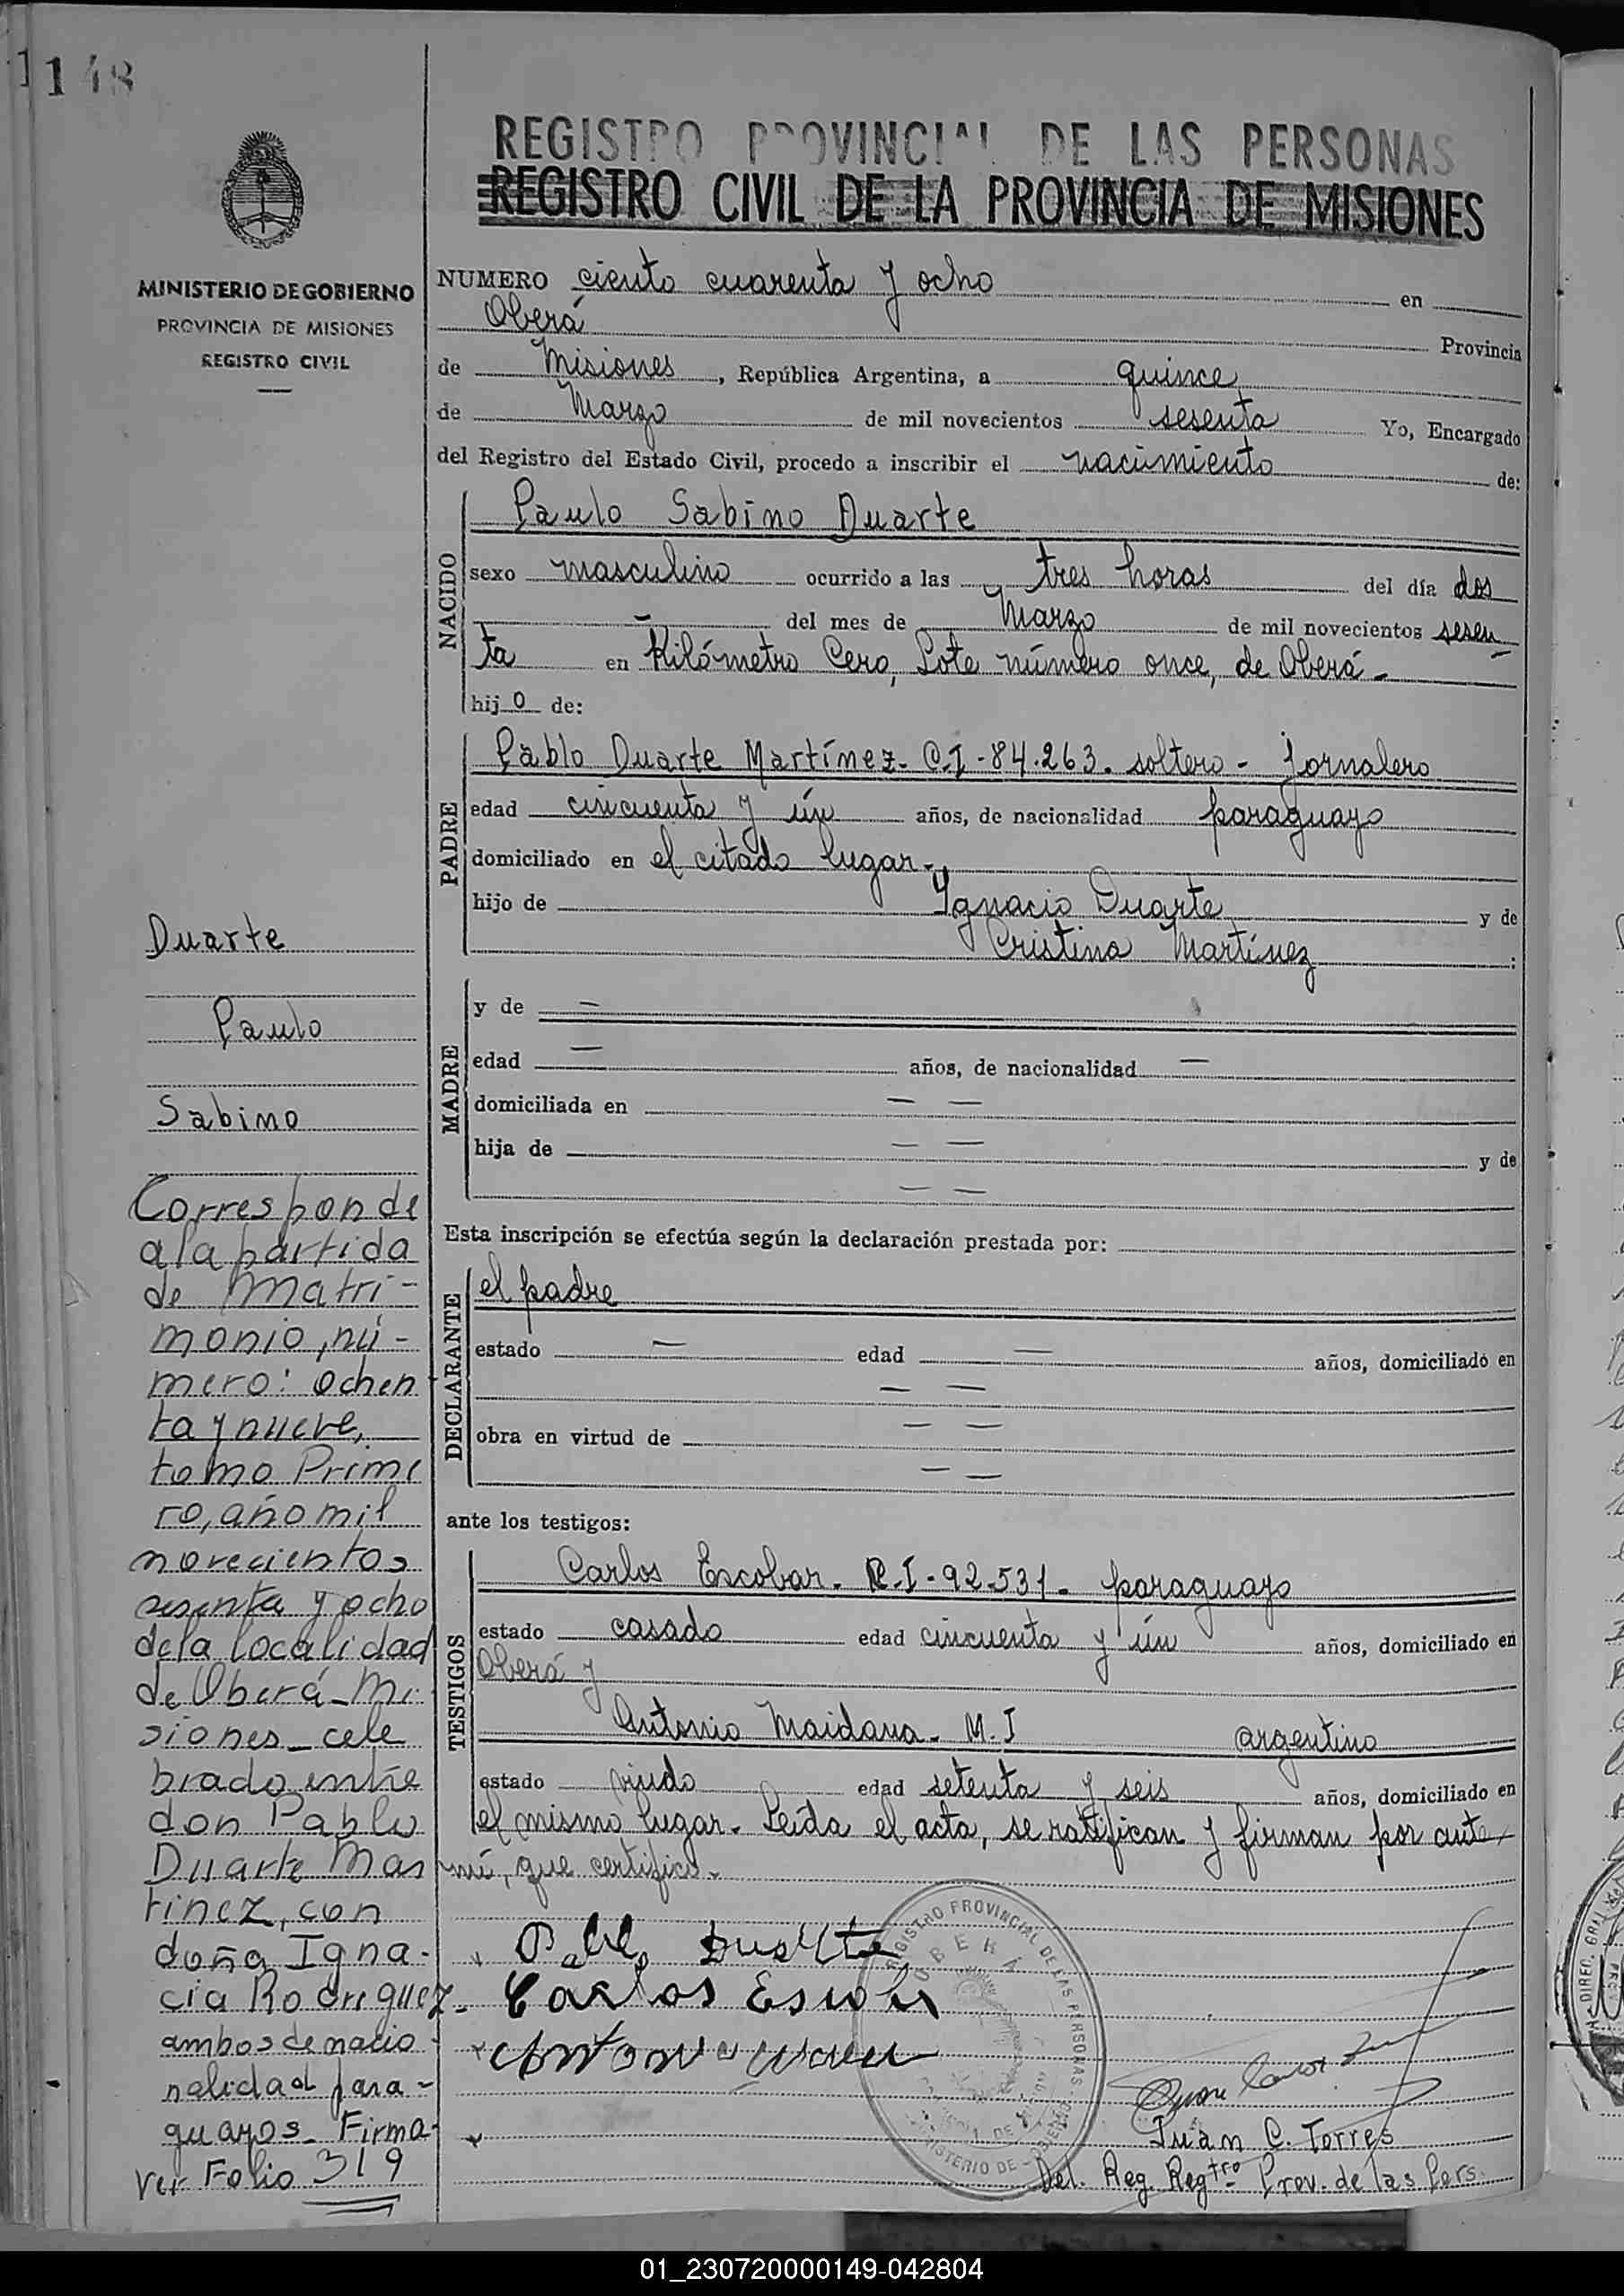 148
MINISTERIO DE GOBIERNO
PROVINCIA DE MISIONES
REGISTRO CIVIL
REGISTRO PROVINCIAL DE LAS PERSONAS
REGISTRO CIVIL DE LA PROVINCIA DE MISIONES
NUMERO ciento cuarenta y ocho en
Oberá Provincia
de Misiones, República Argentina, a quince
de Marzo de mil novecientos sesenta Yo, Encargado
del Registro del Estado Civil, procedo a inscribir el nacimiento de:
NACIDO
Paulo Sabino Duarte
sexo masculino ocurrido a las tres horas del día dos
- del mes de Marzo de mil novecientos sesen
ta en Kilómetro Cero, Lote número once, de Oberá-
hijo de:
PADRE
Pablo Duarte Martínez- C.I-84.263. soltero- jornalero
edad cincuenta y ún años, de nacionalidad paraguayo
domiciliado en el citado lugar-
hijo de Ygnacio Duarte y de
Cristina Martínez :
MADRE
y de —
edad — años, de nacionalidad —
domiciliada en — —
hija de — — y de
— —
Esta inscripción se efectúa según la declaración prestada por:
DECLARANTE
el padre
estado — edad — años, domiciliado en
— —
obra en virtud de — —
— —
ante los testigos:
TESTIGOS
Carlos Escobar- C.I-92.531- paraguayo
estado casado edad cincuenta y ún años, domiciliado en
Oberá y
Antonio Maidana- M.I argentino
estado viudo edad setenta y seis años, domiciliado en
el mismo lugar- Leída el acta, se ratifican y firman por ante
mí, que certifico-
Pablo Duarte
Carlos Escobar
Antonio
REGISTRO PROVINCIAL DE LAS PERSONAS
OBERÁ
MINISTERIO DE GOBIERNO
Juan C. Torres
Del. Reg. Regtro Prov. de las Pers.
Duarte
Paulo
Sabino
Corresponde
a la partida
de Matri-
monio, nú-
mero: ochen
ta y nueve,
tomo Prime
ro, año mil
novecientos
sesenta y ocho
de la localidad
de Oberá-Mi
siones- cele
brado entre
don Pablo
Duarte Mar
tinez, con
doña Igna-
cia Rodriguez-
ambos de nacio
nalidad para-
guayos- Firma-
ver Folio 319
DIREC. GRAL
01_230720000149-042804